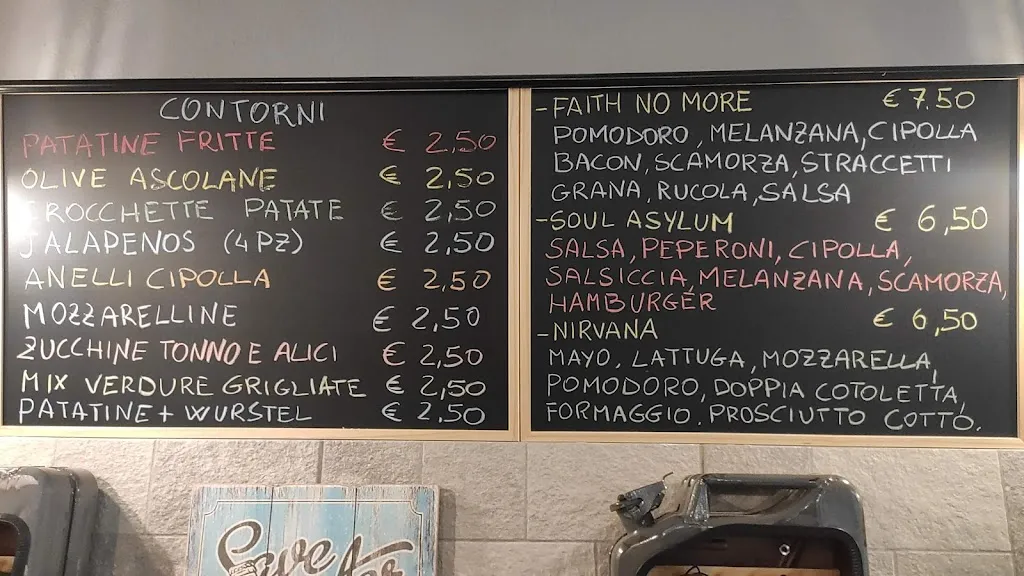 CONTORNI
PATATINE FRITTE € 2,50
OLIVE ASCOLANE € 2,50
CROCCHETTE PATATE € 2,50
JALAPENOS (4PZ) € 2,50
ANELLI CIPOLLA € 2,50
MOZZARELLINE € 2,50
ZUCCHINE TONNO E ALICI € 2,50
MIX VERDURE GRIGLIATE € 2,50
PATATINE + WURSTEL € 2,50
-FAITH NO MORE € 7.50
POMODORO, MELANZANA, CIPOLLA
BACON, SCAMORZA, STRACCETTI
GRANA, RUCOLA, SALSA
-SOUL ASYLUM € 6,50
SALSA, PEPERONI, CIPOLLA,
SALSICCIA, MELANZANA, SCAMORZA,
HAMBURGER
-NIRVANA € 6,50
MAYO, LATTUGA, MOZZARELLA,
POMODORO, DOPPIA COTOLETTA,
FORMAGGIO, PROSCIUTTO COTTO.
Save